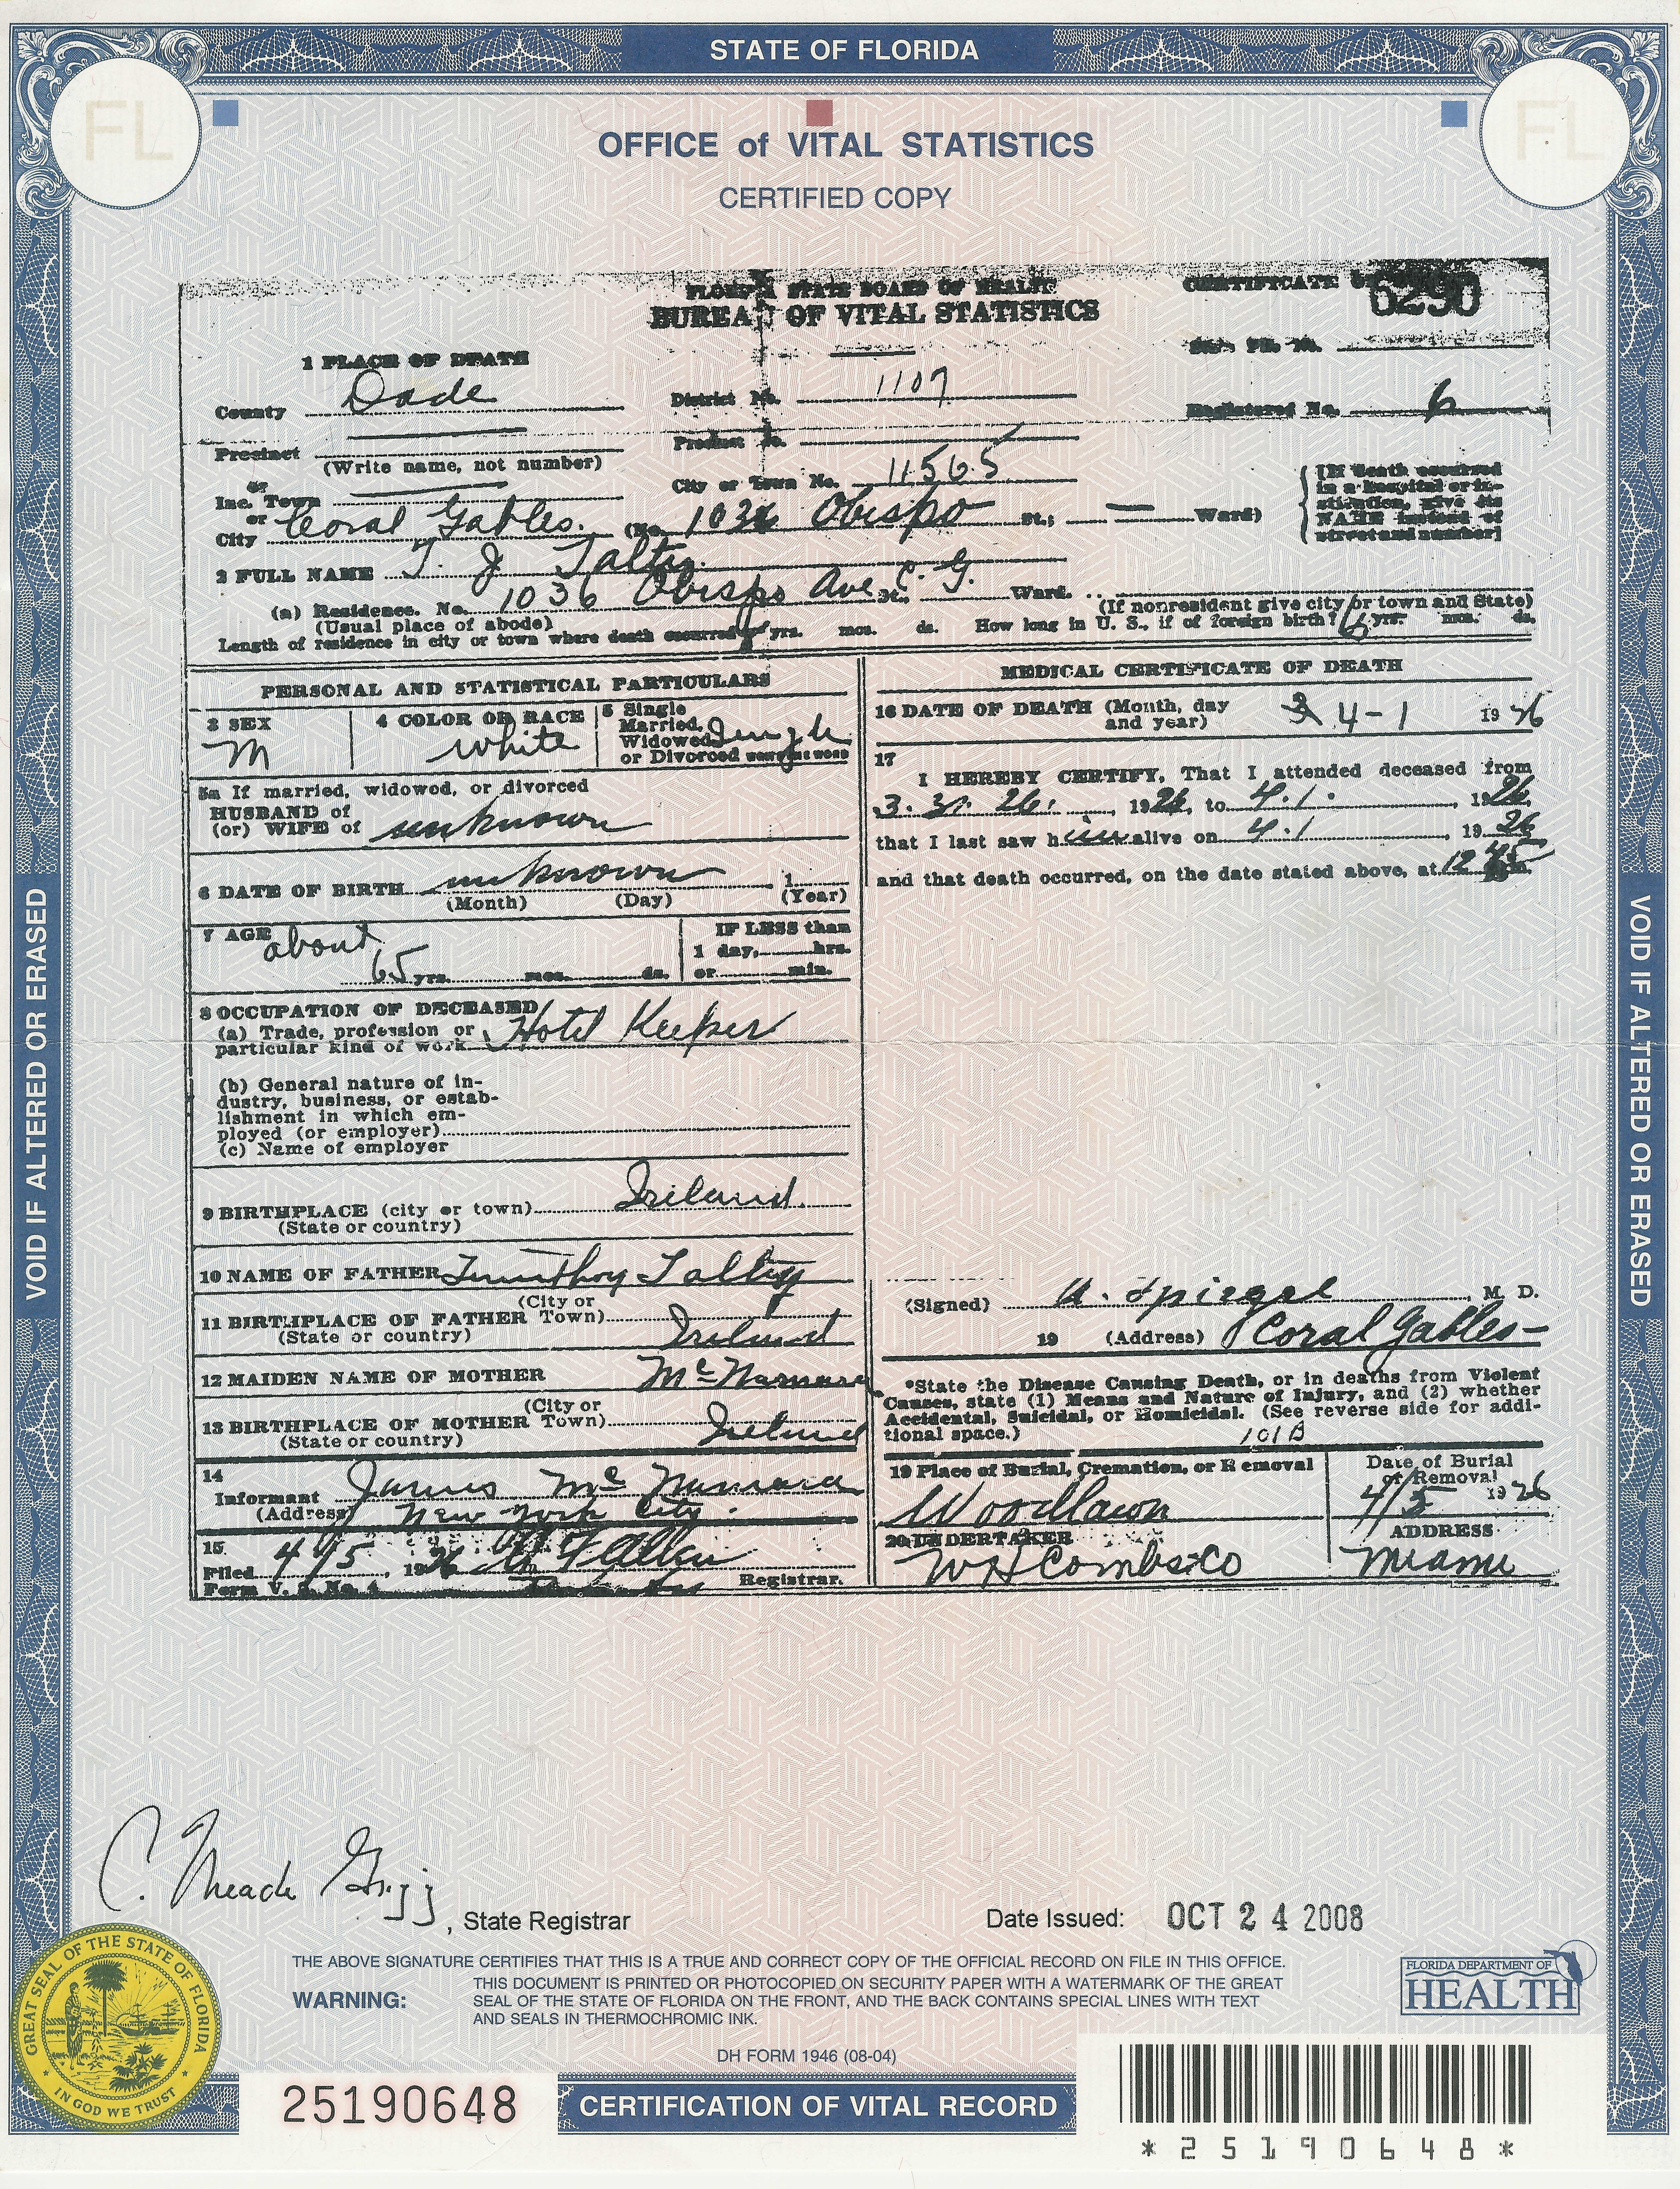 STATE OF FLORIDA
FL
FL
OFFICE of VITAL STATISTICS
CERTIFIED COPY
FLORIDA STATE BOARD OF HEALTH
BUREAU OF VITAL STATISTICS
CERTIFICATE
6290
1 PLACE OF DEATH
State File No.
County Dade
District No. 1107
Registered No. 6
Precinct
(Write name, not number)
Precinct No.
or
Inc. Town
City or Town No. 11565
or
City Coral Gables. (No. 1036 Obispo St.; Ward)
[If death occurred
in a hospital or in-
stitution, give its
NAME instead of
street and number]
2 FULL NAME T. J. Talty.
(a) Residence. No. 1036 Obispo Ave St., C. G. Ward.
(Usual place of abode)
(If nonresident give city or town and State)
Length of residence in city or town where death occurred yrs. mos. ds. How long in U. S., if of foreign birth? yrs. mos. ds.
PERSONAL AND STATISTICAL PARTICULARS
3 SEX
M
4 COLOR OR RACE
White
5 Single
Married,
Widowed
or Divorced
Single
5a If married, widowed, or divorced
HUSBAND of
(or) WIFE of unknown
6 DATE OF BIRTH unknown 1
(Month) (Day) (Year)
7 AGE about
65 yrs. mos. ds.
IF LESS than
1 day, hrs.
or min.
8 OCCUPATION OF DECEASED
(a) Trade, profession or
particular kind of work Hotel Keeper
(b) General nature of in-
dustry, business, or estab-
lishment in which em-
ployed (or employer)
(c) Name of employer
9 BIRTHPLACE (city or town) Ireland.
(State or country)
10 NAME OF FATHER Timothy Talty
11 BIRTHPLACE OF FATHER (City or Town)
(State or country) Ireland
12 MAIDEN NAME OF MOTHER McNamara
13 BIRTHPLACE OF MOTHER (City or Town)
(State or country) Ireland
14
Informant James McNamara
(Address) New York City.
15
Filed 4/5, 1926
Registrar.
Form V. S. No. 4
MEDICAL CERTIFICATE OF DEATH
16 DATE OF DEATH (Month, day
and year) 4-1 1926
17
I HEREBY CERTIFY, That I attended deceased from
3. 31. 26. 1926, to 4.1. 1926
that I last saw him alive on 4.1 1926
and that death occurred, on the date stated above, at 12 45 m.
(Signed) A. Spiegel, M. D.
19 (Address) Coral Gables-
*State the Disease Causing Death, or in deaths from Violent
Causes, state (1) Means and Nature of Injury, and (2) whether
Accidental, Suicidal, or Homicidal. (See reverse side for addi-
tional space.)
101B
19 Place of Burial, Cremation, or Removal
Woodlawn
Date of Burial
or Removal
4/5 1926
20 UNDERTAKER
W H Combs & Co
ADDRESS
Miami
VOID IF ALTERED OR ERASED
VOID IF ALTERED OR ERASED
C. Meade Grigg
, State Registrar
Date Issued: OCT 24 2008
THE ABOVE SIGNATURE CERTIFIES THAT THIS IS A TRUE AND CORRECT COPY OF THE OFFICIAL RECORD ON FILE IN THIS OFFICE.
WARNING:
THIS DOCUMENT IS PRINTED OR PHOTOCOPIED ON SECURITY PAPER WITH A WATERMARK OF THE GREAT
SEAL OF THE STATE OF FLORIDA ON THE FRONT, AND THE BACK CONTAINS SPECIAL LINES WITH TEXT
AND SEALS IN THERMOCHROMIC INK.
FLORIDA DEPARTMENT OF
HEALTH
GREAT SEAL OF THE STATE OF FLORIDA
IN GOD WE TRUST
DH FORM 1946 (08-04)
25190648
CERTIFICATION OF VITAL RECORD
*25190648*